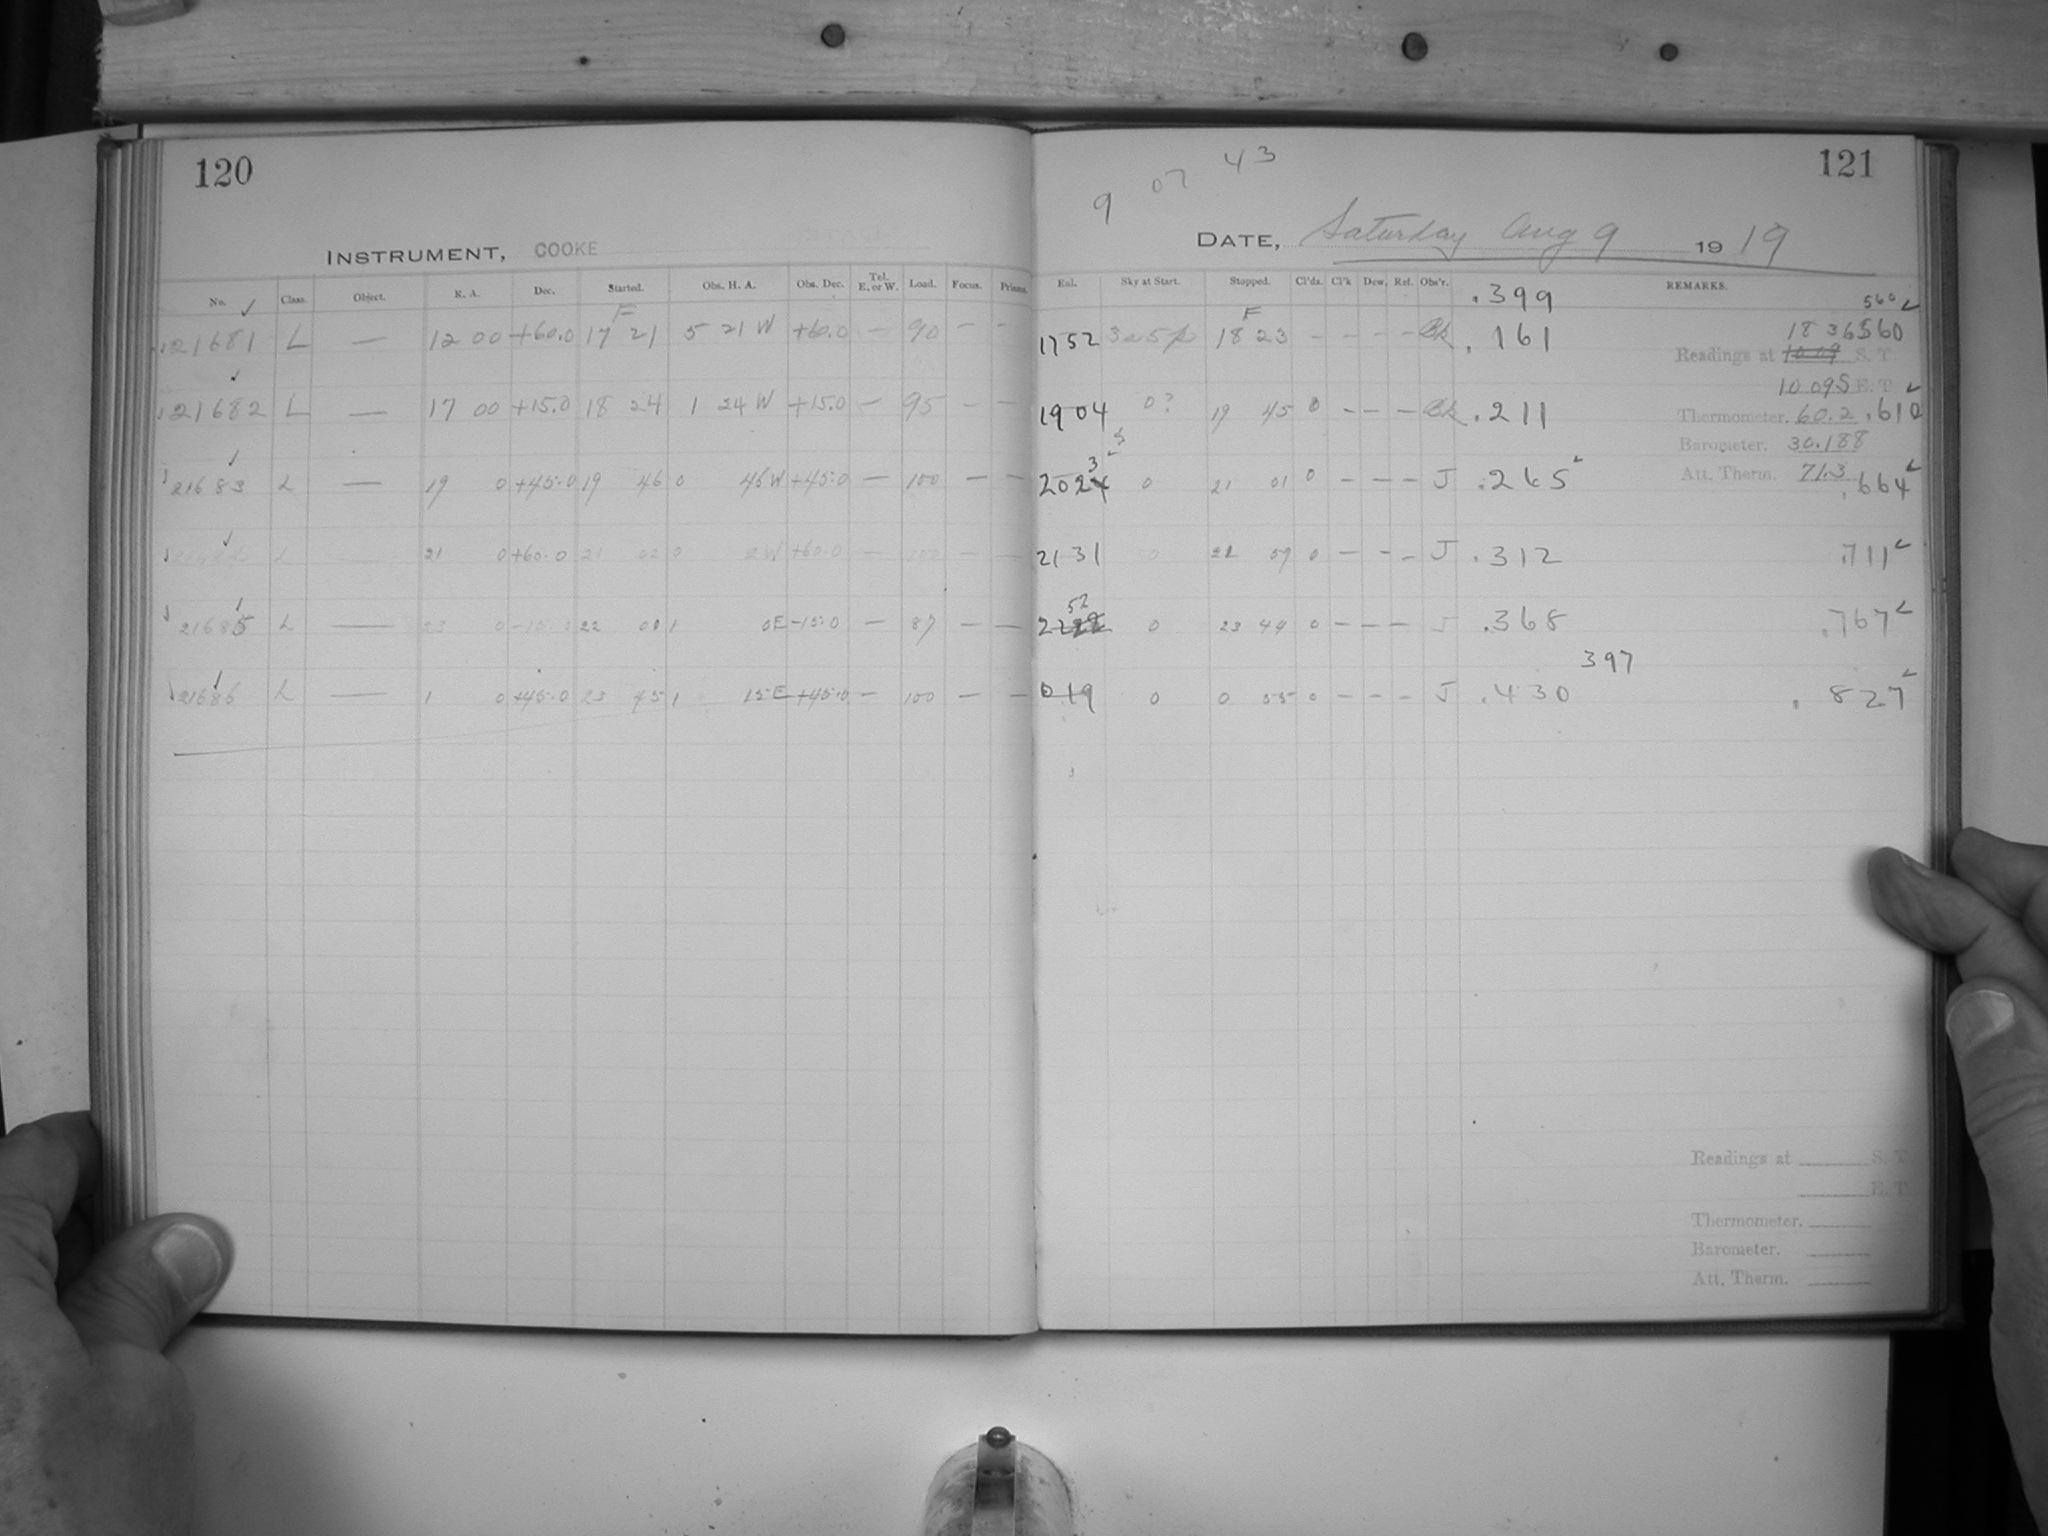 120
INSTRUMENT, COOKE
No. Class. Object. R. A. Dec. Started. Obs. H. A. Obs. Dec. Tel. E. or W. Load. Focus. Prisms.
F
21681 L — 12 00 +60.0 17 21 5 21 W +60.0 — 90 — —
21682 L — 17 00 +15.0 18 24 1 24 W +15.0 — 95 — —
21683 L — 19 0 +45.0 19 46 0 46 W +45.0 — 100 — —
L 21 0 +60.0 21 02 0 2 W +60.0 — 100 — —
21685 L — 23 0 -15.0 22 00 1 0 E -15.0 — 87 — —
21686 L — 1 0 +45.0 23 45 1 15 E +45.0 — 100 — —
121
9 07 43
DATE, Saturday Aug 9 1919
Eal. Sky at Start. Stopped. Cl'ds. Cl'k Dew. Ref. Obs'r. REMARKS.
.399 560
F
1752 18 23 - - - - Bk .161 1836560
Readings at S. T.
10 09S E. T.
1904 0? 19 45 0 - - - Bk .211 Thermometer. 60.2 .610
Barometer. 30.188
3
202 0 21 01 0 - - - J .265 Att. Therm. 71.3 .664
2131 0 22 59 0 - - - J .312 .711
52
2 0 23 44 0 - - - J .368 .767
397
0 19 0 0 55 0 - - - J .430 .827
Readings at S. T.
E. T.
Thermometer.
Barometer.
Att. Therm.